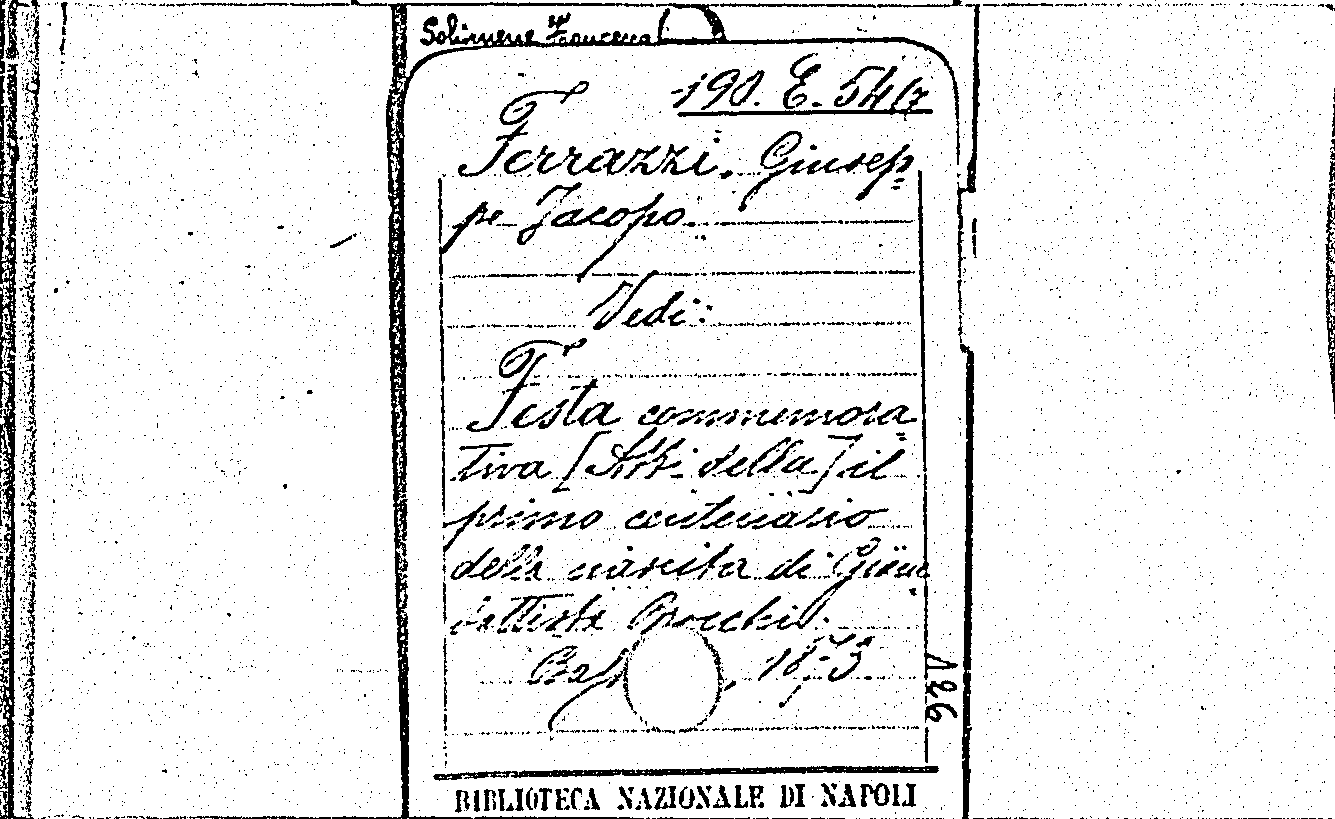 Solimene Francesca
190. E. 54(7
Ferrazzi, Giusep=
pe Jacopo.
Vedi:
Festa commemora=
tiva [Atti della] il
primo centenario
della nascita di Giam
battista Brocchi.
, 1873.
126
BIBLIOTECA NAZIONALE DI NAPOLI